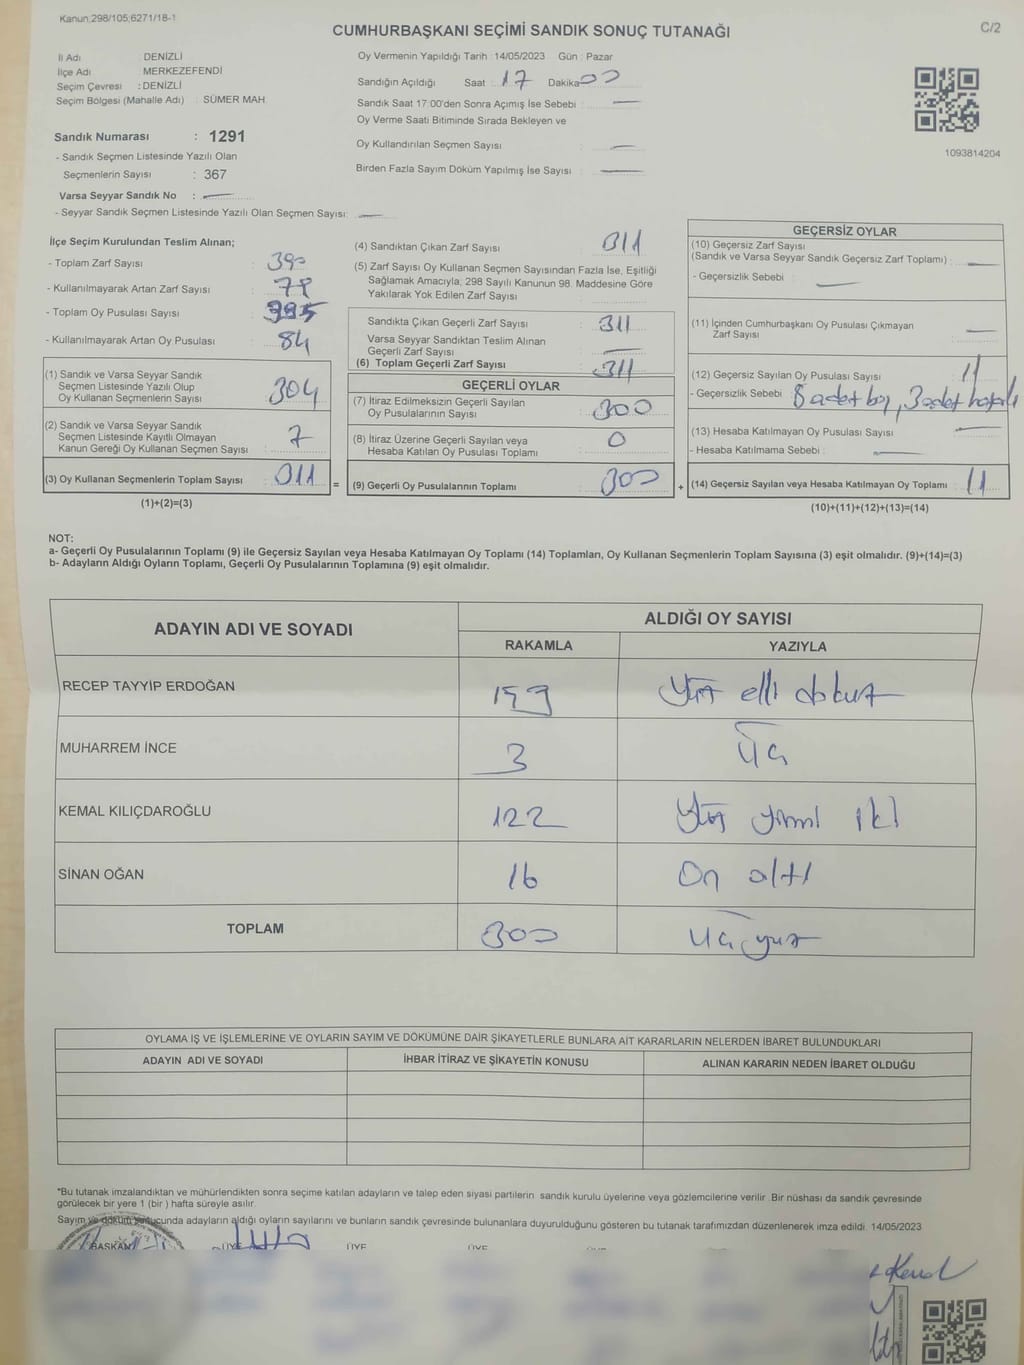 Kanun;298/105;6271/18-1
CUMHURBAŞKANI SEÇİMİ SANDIK SONUÇ TUTANAĞI
C/2
İl Adı DENİZLİ
İlçe Adı : MERKEZEFENDİ
Seçim Çevresi : DENİZLİ
Seçim Bölgesi (Mahalle Adı) : SÜMER MAH.
Sandık Numarası : 1291
- Sandık Seçmen Listesinde Yazılı Olan
Seçmenlerin Sayısı : 367
Varsa Seyyar Sandık No : —
- Seyyar Sandık Seçmen Listesinde Yazılı Olan Seçmen Sayısı: —
Oy Vermenin Yapıldığı Tarih : 14/05/2023 Gün : Pazar
Sandığın Açıldığı Saat : 17 Dakika 00
Sandık Saat 17:00'den Sonra Açımış İse Sebebi : —
Oy Verme Saati Bitiminde Sırada Bekleyen ve
Oy Kullandırılan Seçmen Sayısı : —
Birden Fazla Sayım Döküm Yapılmış İse Sayısı : —
1093814204
İlçe Seçim Kurulundan Teslim Alınan;
- Toplam Zarf Sayısı : 390
- Kullanılmayarak Artan Zarf Sayısı : 79
- Toplam Oy Pusulası Sayısı : 395
- Kullanılmayarak Artan Oy Pusulası : 84
(1) Sandık ve Varsa Seyyar Sandık
Seçmen Listesinde Yazılı Olup
Oy Kullanan Seçmenlerin Sayısı : 304
(2) Sandık ve Varsa Seyyar Sandık
Seçmen Listesinde Kayıtlı Olmayan
Kanun Gereği Oy Kullanan Seçmen Sayısı : 7
(3) Oy Kullanan Seçmenlerin Toplam Sayısı : 311 =
(1)+(2)=(3)
(4) Sandıktan Çıkan Zarf Sayısı : 311
(5) Zarf Sayısı Oy Kullanan Seçmen Sayısından Fazla İse, Eşitliği
Sağlamak Amacıyla; 298 Sayılı Kanunun 98. Maddesine Göre
Yakılarak Yok Edilen Zarf Sayısı :
Sandıkta Çıkan Geçerli Zarf Sayısı : 311
Varsa Seyyar Sandıktan Teslim Alınan
Geçerli Zarf Sayısı : —
(6) Toplam Geçerli Zarf Sayısı : 311
GEÇERLİ OYLAR
(7) İtiraz Edilmeksizin Geçerli Sayılan
Oy Pusulalarının Sayısı : 300
(8) İtiraz Üzerine Geçerli Sayılan veya
Hesaba Katılan Oy Pusulası Toplamı : 0
(9) Geçerli Oy Pusulalarının Toplamı : 300 +
GEÇERSİZ OYLAR
(10) Geçersiz Zarf Sayısı
(Sandık ve Varsa Seyyar Sandık Geçersiz Zarf Toplamı) : —
- Geçersizlik Sebebi : —
(11) İçinden Cumhurbaşkanı Oy Pusulası Çıkmayan
Zarf Sayısı : —
(12) Geçersiz Sayılan Oy Pusulası Sayısı : 11
- Geçersizlik Sebebi : 8 adet boş, 3 adet hatalı
(13) Hesaba Katılmayan Oy Pusulası Sayısı : —
- Hesaba Katılmama Sebebi : —
(14) Geçersiz Sayılan veya Hesaba Katılmayan Oy Toplamı : 11
(10)+(11)+(12)+(13)=(14)
NOT:
a- Geçerli Oy Pusulalarının Toplamı (9) ile Geçersiz Sayılan veya Hesaba Katılmayan Oy Toplamı (14) Toplamları, Oy Kullanan Seçmenlerin Toplam Sayısına (3) eşit olmalıdır. (9)+(14)=(3)
b- Adayların Aldığı Oyların Toplamı, Geçerli Oy Pusulalarının Toplamına (9) eşit olmalıdır.
ADAYIN ADI VE SOYADI ALDIĞI OY SAYISI
RAKAMLA YAZIYLA
RECEP TAYYİP ERDOĞAN 159 Yüz elli dokuz
MUHARREM İNCE 3 Üç
KEMAL KILIÇDAROĞLU 122 Yüz yirmi iki
SİNAN OĞAN 16 On altı
TOPLAM 300 Üç yüz
OYLAMA İŞ VE İŞLEMLERİNE VE OYLARIN SAYIM VE DÖKÜMÜNE DAİR ŞİKAYETLERLE BUNLARA AİT KARARLARIN NELERDEN İBARET BULUNDUKLARI
ADAYIN ADI VE SOYADI İHBAR İTİRAZ VE ŞİKAYETİN KONUSU ALINAN KARARIN NEDEN İBARET OLDUĞU
*Bu tutanak imzalandıktan ve mühürlendikten sonra seçime katılan adayların ve talep eden siyasi partilerin sandık kurulu üyelerine veya gözlemcilerine verilir. Bir nüshası da sandık çevresinde
görülecek bir yere 1 (bir ) hafta süreyle asılır.
Sayım ve döküm sonucunda adayların aldığı oyların sayılarını ve bunların sandık çevresinde bulunanlara duyurulduğunu gösteren bu tutanak tarafımızdan düzenlenerek imza edildi. 14/05/2023
BAŞKAN ÜYE ÜYE ÜYE